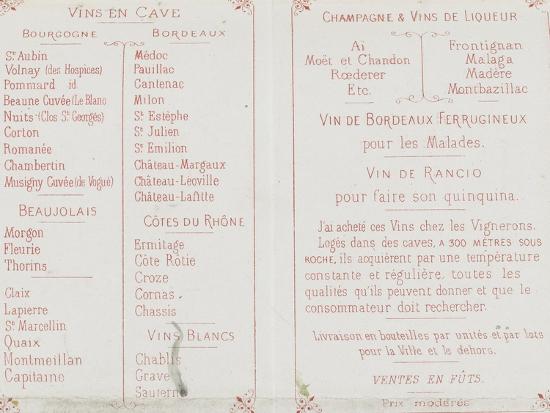 VINS EN CAVE
BOURGOGNE
St Aubin
Volnay (des Hospices)
Pommard id.
Beaune Cuvée (Le Blanc
Nuits (Clos St Georges)
Corton
Romanée
Chambertin
Musigny Cuvée (de Vogué)
BEAUJOLAIS
Morgon
Fleurie
Thorins
Claix
Lapierre
St Marcellin
Quaix
Montmeillan
Capitaine
BORDEAUX
Médoc
Pauillac
Cantenac
Milon
St Estèphe
St Julien
St Emilion
Château-Margaux
Château-Léoville
Château-Lafitte
CÔTES DU RHÔNE
Ermitage
Côte Rôtie
Croze
Cornas
Chassis
VINS BLANCS
Chablis
Grave
Sauterne
CHAMPAGNE & VINS DE LIQUEUR
Aï
Moët et Chandon
Rœderer
Etc.
Frontignan
Malaga
Madère
Montbazillac
VIN DE BORDEAUX FERRUGINEUX
pour les Malades.
VIN DE RANCIO
pour faire son quinquina.
J'ai acheté ces Vins chez les Vignerons.
Logés dans des caves, A 300 MÈTRES SOUS
ROCHE, ils acquièrent par une température
constante et régulière, toutes les
qualités qu'ils peuvent donner et que le
consommateur doit rechercher.
Livraison en bouteilles par unités et par lots
pour la Ville et le dehors.
VENTES EN FÛTS.
Prix modérés